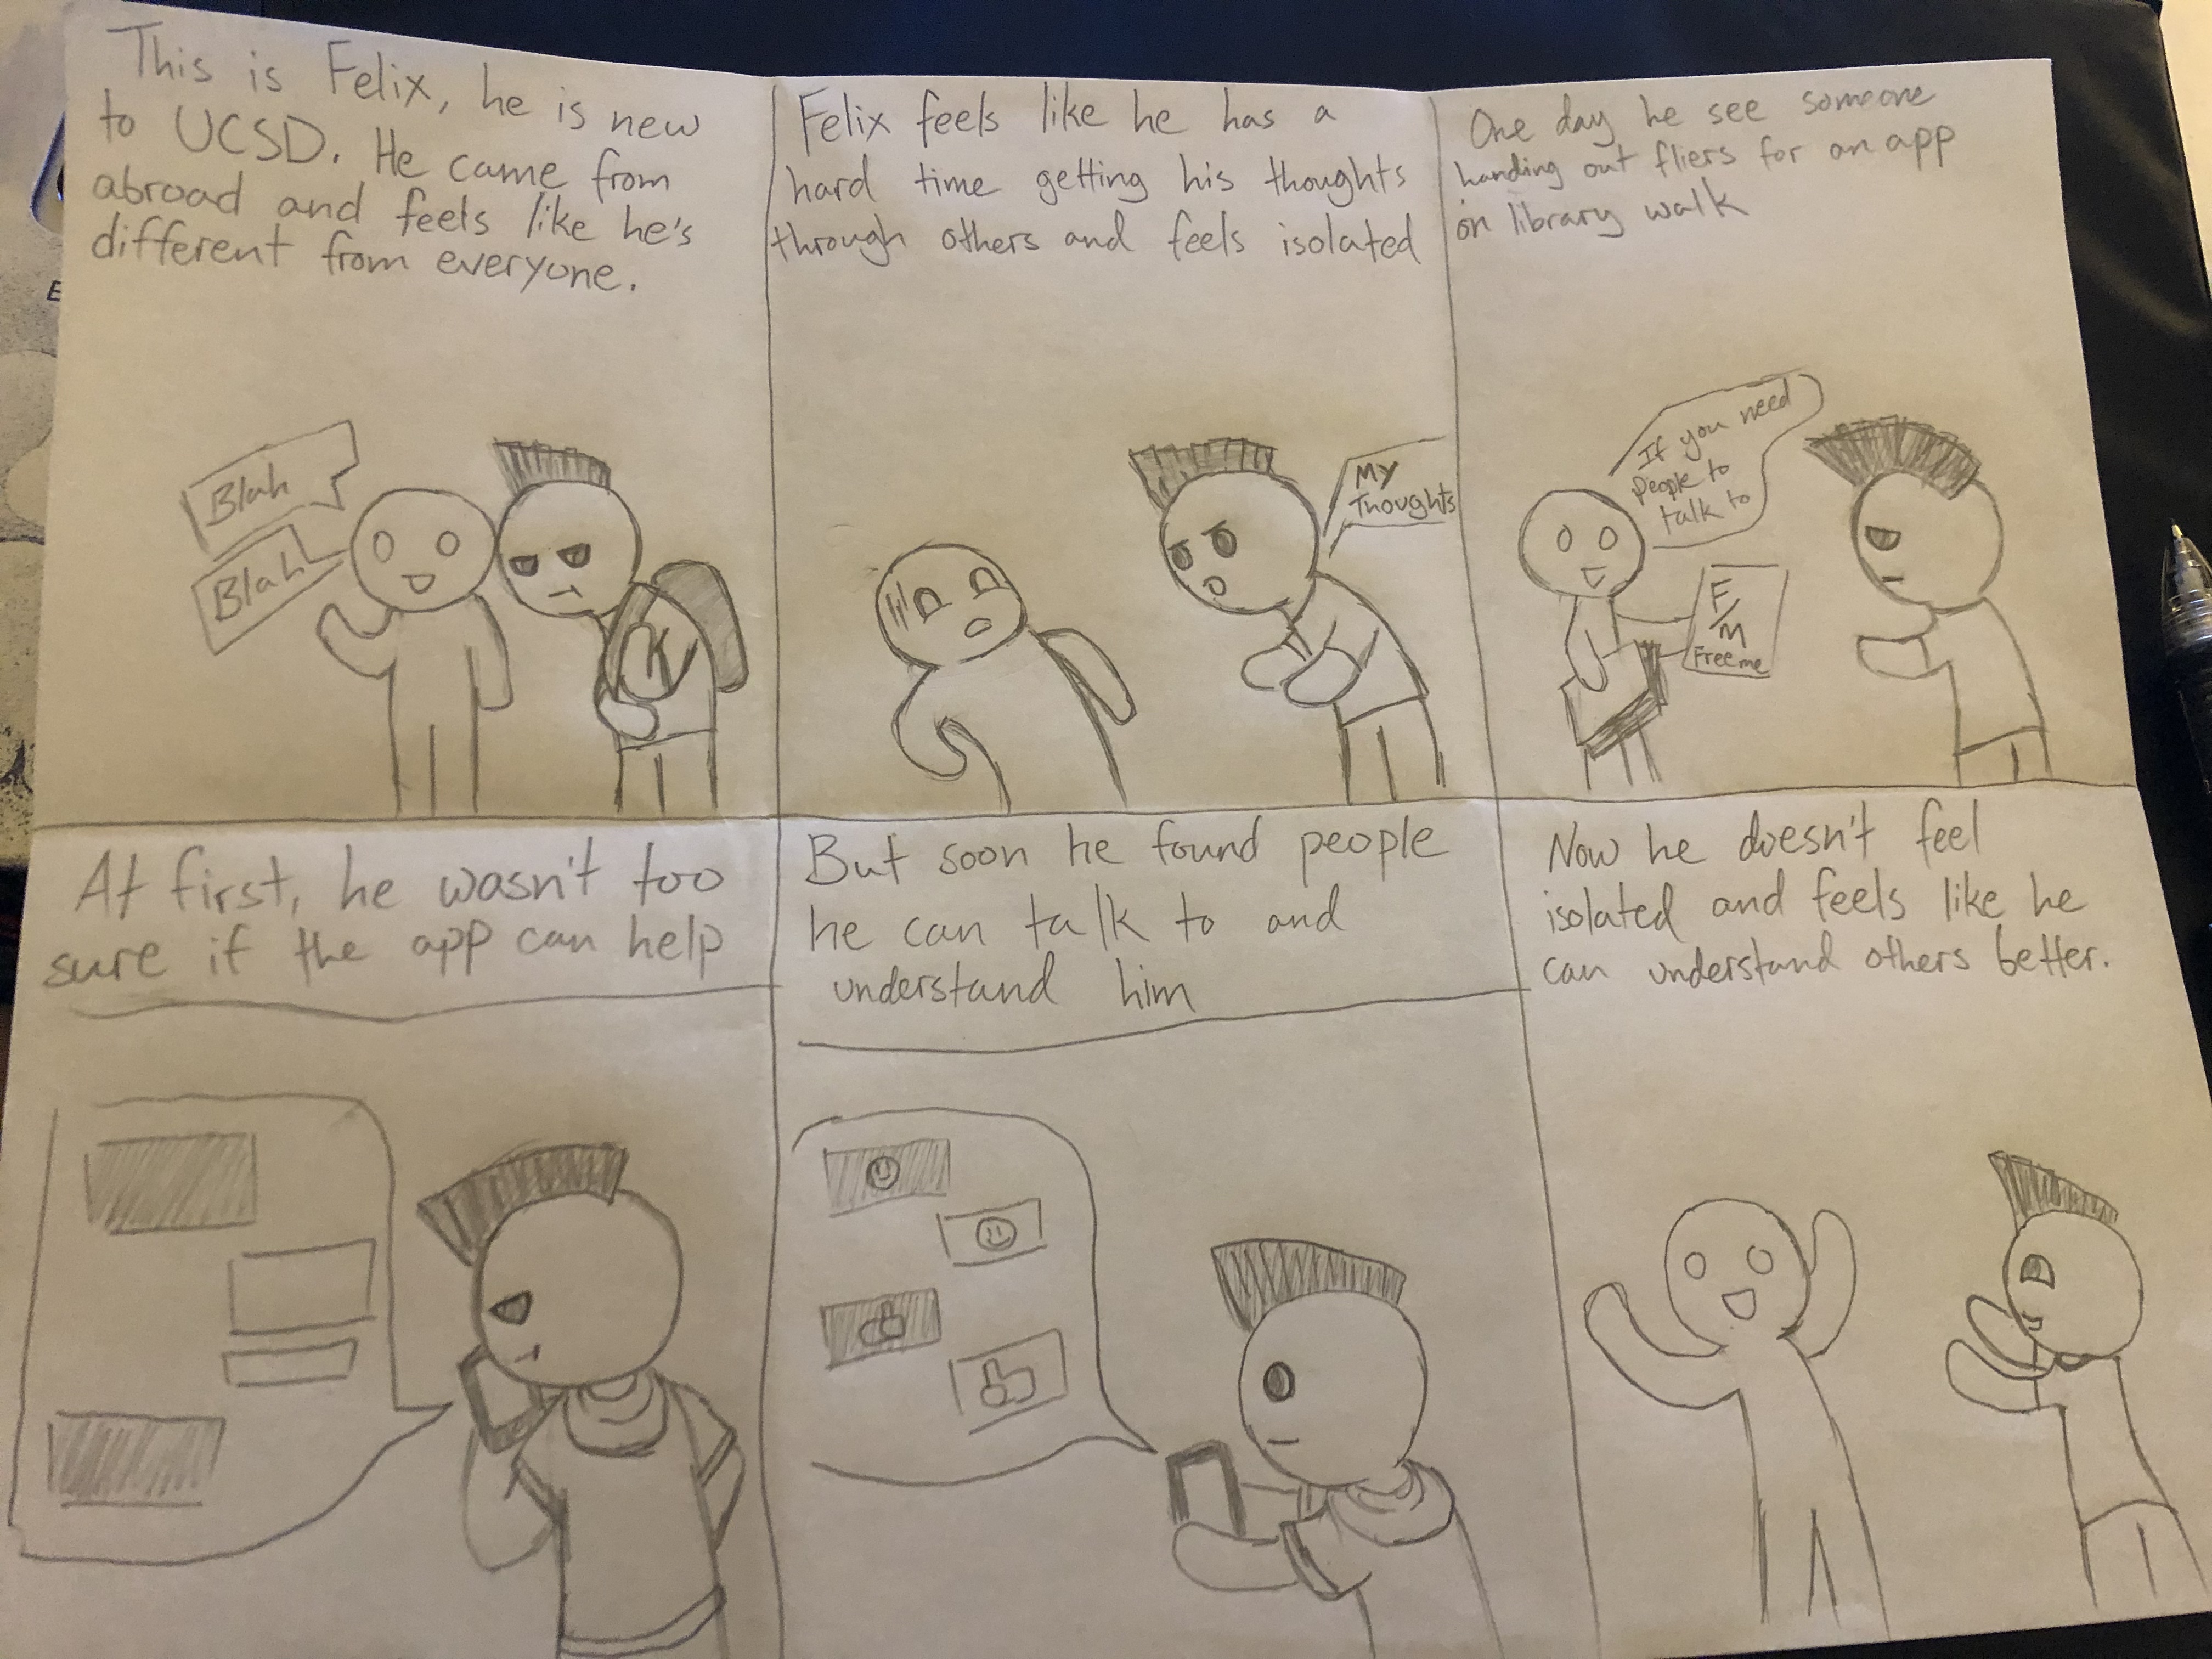 This is Felix, he is new
to UCSD. He came from
abroad and feels like he's
different from everyone.
Blah
Blah
Felix feels like he has a
hard time getting his thoughts
through others and feels isolated
My
Thoughts
One day he see someone
handing out fliers for an app
on library walk
If you need
people to
talk to
F/M
Free me
At first, he wasn't too
sure if the app can help
But soon he found people
he can talk to and
understand him
Now he doesn't feel
isolated and feels like he
can understand others better.